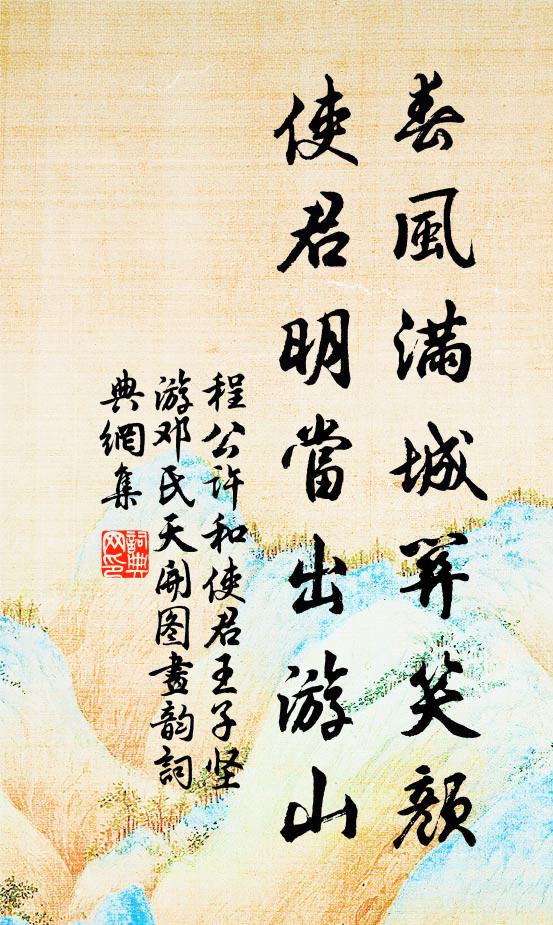 春風滿城開笑顏
使君明當出游山
程公许和使君王子坚
游邓氏天開图畫韵詞
典網集
詞典
网印